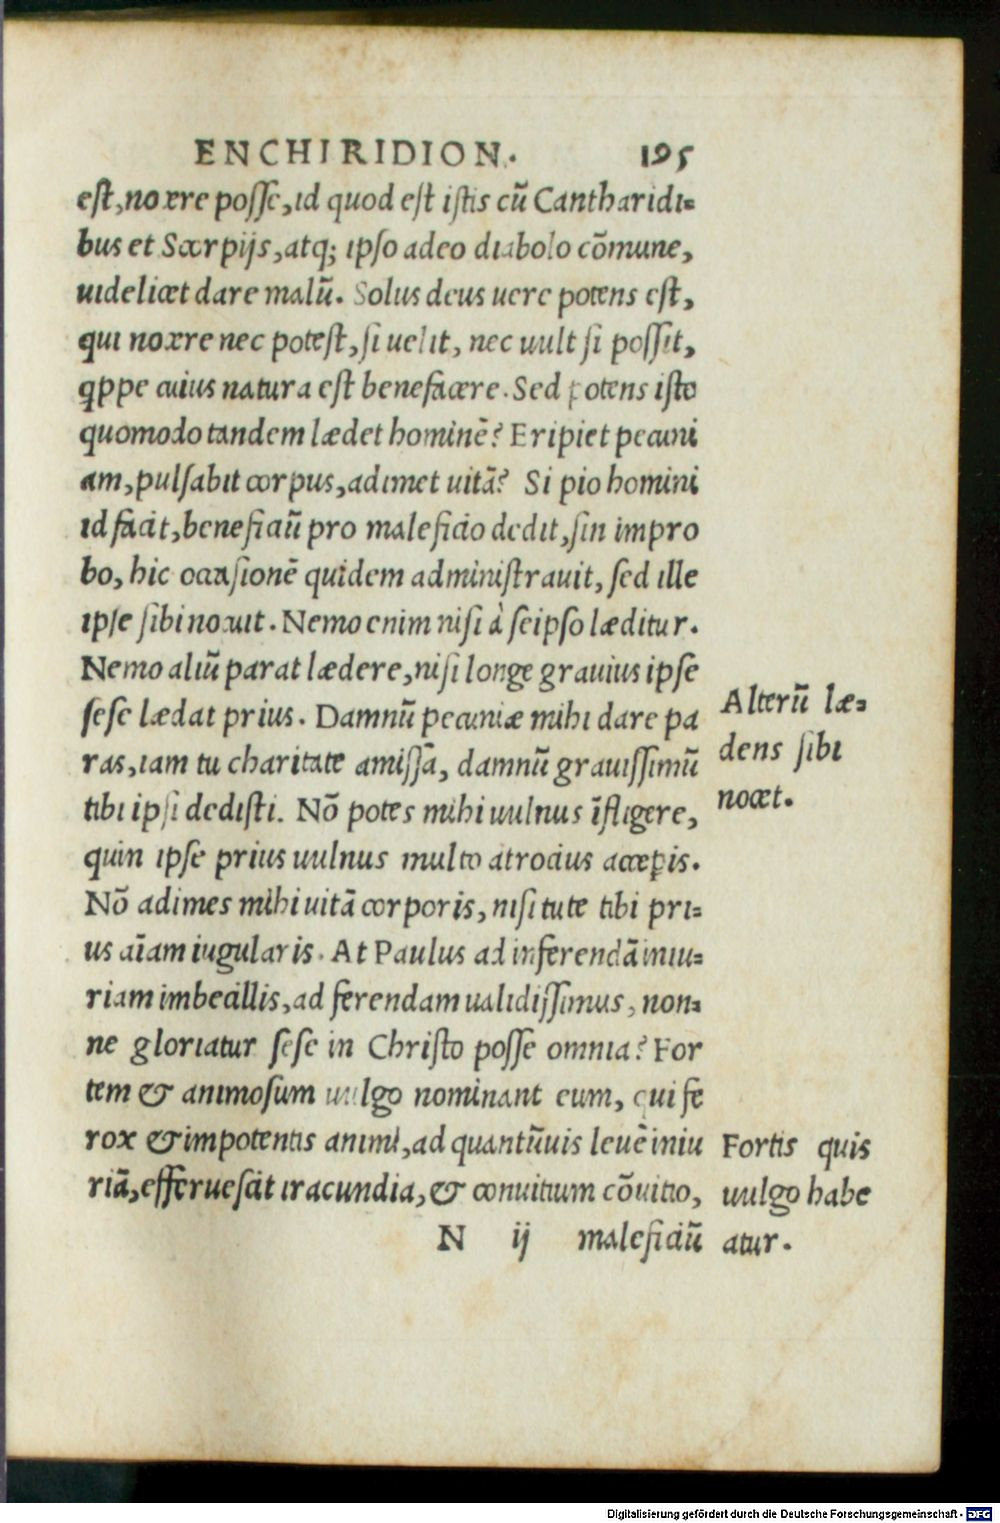 ENCHIRIDION. 195
est, nocere posse, id quod est istis cũ Cantharidi=
bus et Scorpijs, atq; ipso adeo diabolo cõmune,
uidelicet dare malũ. Solus deus uere potens est,
qui nocere nec potest, si uelit, nec uult si possit,
qppe cuius natura est benefacere. Sed potens iste
quomodo tandem lædet hominẽ? Eripiet pecuni
am, pulsabit corpus, adimet uitã? Si pio homini
id facit, beneficiũ pro maleficio dedit, sin impro
bo, hic occasionẽ quidem administrauit, sed ille
ipse sibi nocuit. Nemo enim nisi à seipso læditur.
Nemo aliũ parat lædere, nisi longe grauius ipse
sese lædat prius. Damnũ pecuniæ mihi dare pa
ras, iam tu charitate amissã, damnũ grauissimũ
tibi ipsi dedisti. Nõ potes mihi uulnus ĩfligere,
quin ipse prius uulnus multo atrocius acceperis.
Nõ adimes mihi uitã corporis, nisi tute tibi pri=
us aĩam iugularis. At Paulus ad inferendã iniu=
riam imbecillis, ad ferendam ualidissimus, non=
ne gloriatur sese in Christo posse omnia? For
tem & animosum uulgo nominant eum, qui fe
rox & impotentis animi, ad quantũuis leuẽ iniu
riã, efferuescit iracundia, & conuitium cõuitio,
N ij maleficiũ
Alterũ læ=
dens sibi
nocet.
Fortis quis
uulgo habe
atur.
Digitalisierung gefördert durch die Deutsche Forschungsgemeinschaft - DFG